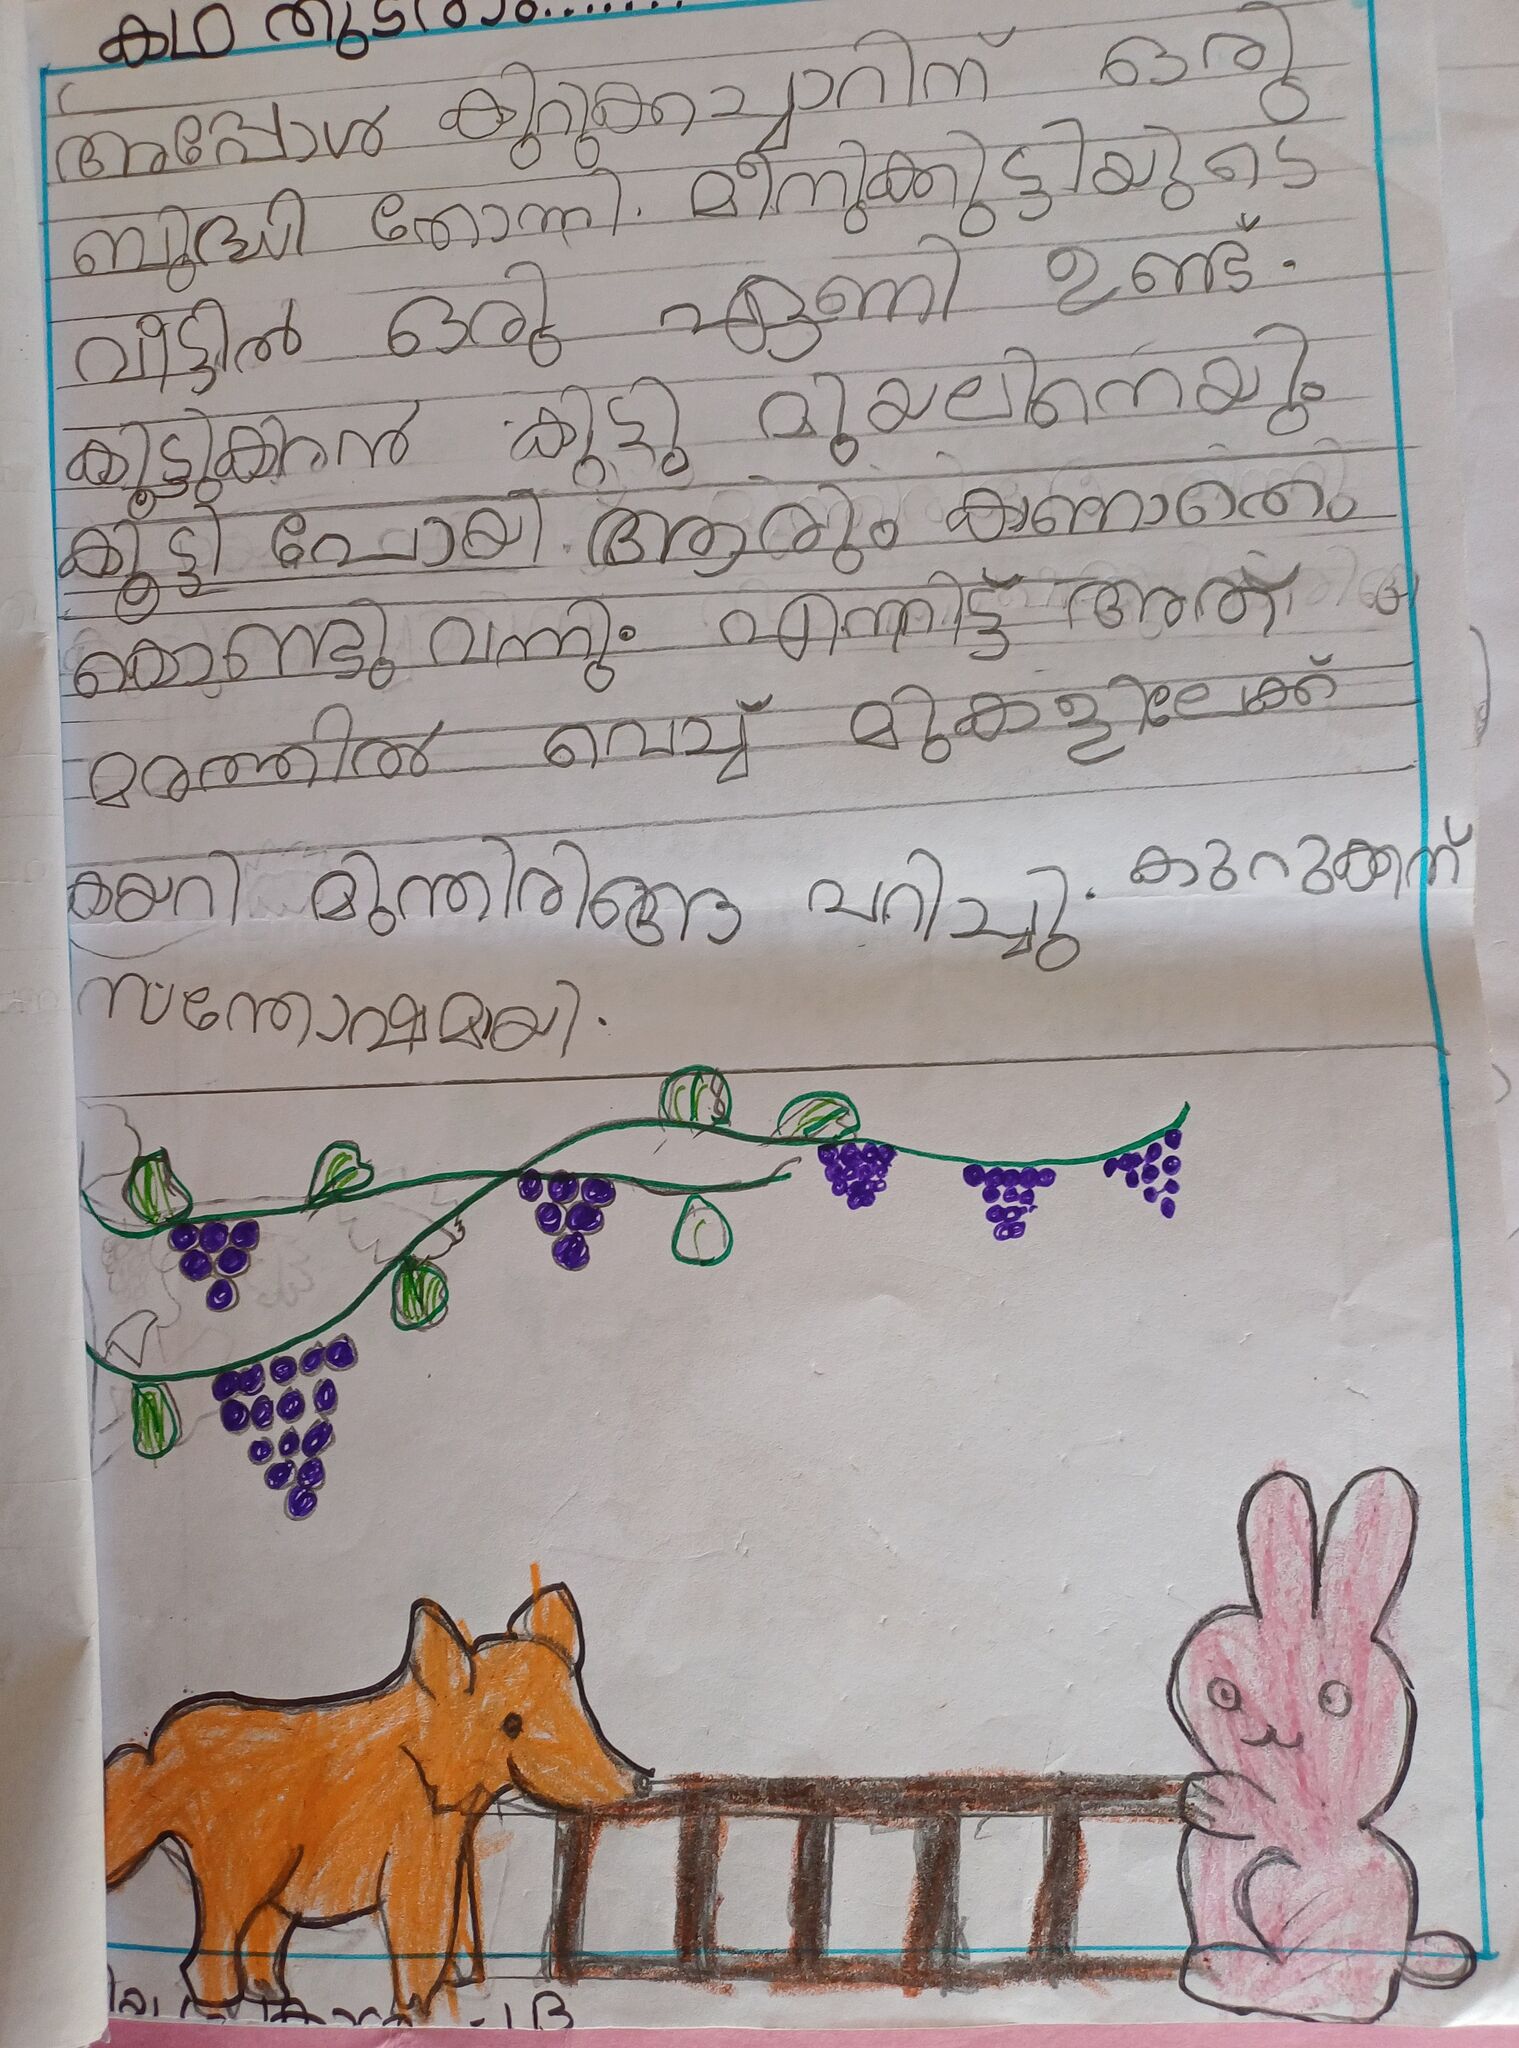 കഥ തുടരാം.......
അപ്പോൾ കുറുക്കച്ചാറിന് ഒരു
ബുദ്ധി തോന്നി. മീനുക്കുട്ടിയുടെ
വീട്ടിൽ ഒരു ഏണി ഉണ്ട്.
കിട്ടുക്കുറുൻ കിട്ടു മുയലിനെയും
കൂട്ടി പോയി. ആരും കാണാതെ
കൊണ്ടു വന്നു. എന്നിട്ട് അത്
മരത്തിൽ വെച്ച് മുകളിലേക്ക്
കയറി മുന്തിരിങ്ങ പറിച്ചു. കുറുക്കന്
സന്തോഷമായി.
1B